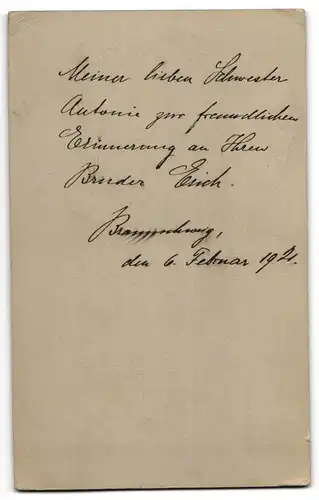 Meiner lieben Schwester
Antonie zur freundlichen
Erinnerung an Ihren
Bruder Erich.
Braunschweig,
den 6. Februar 1921.